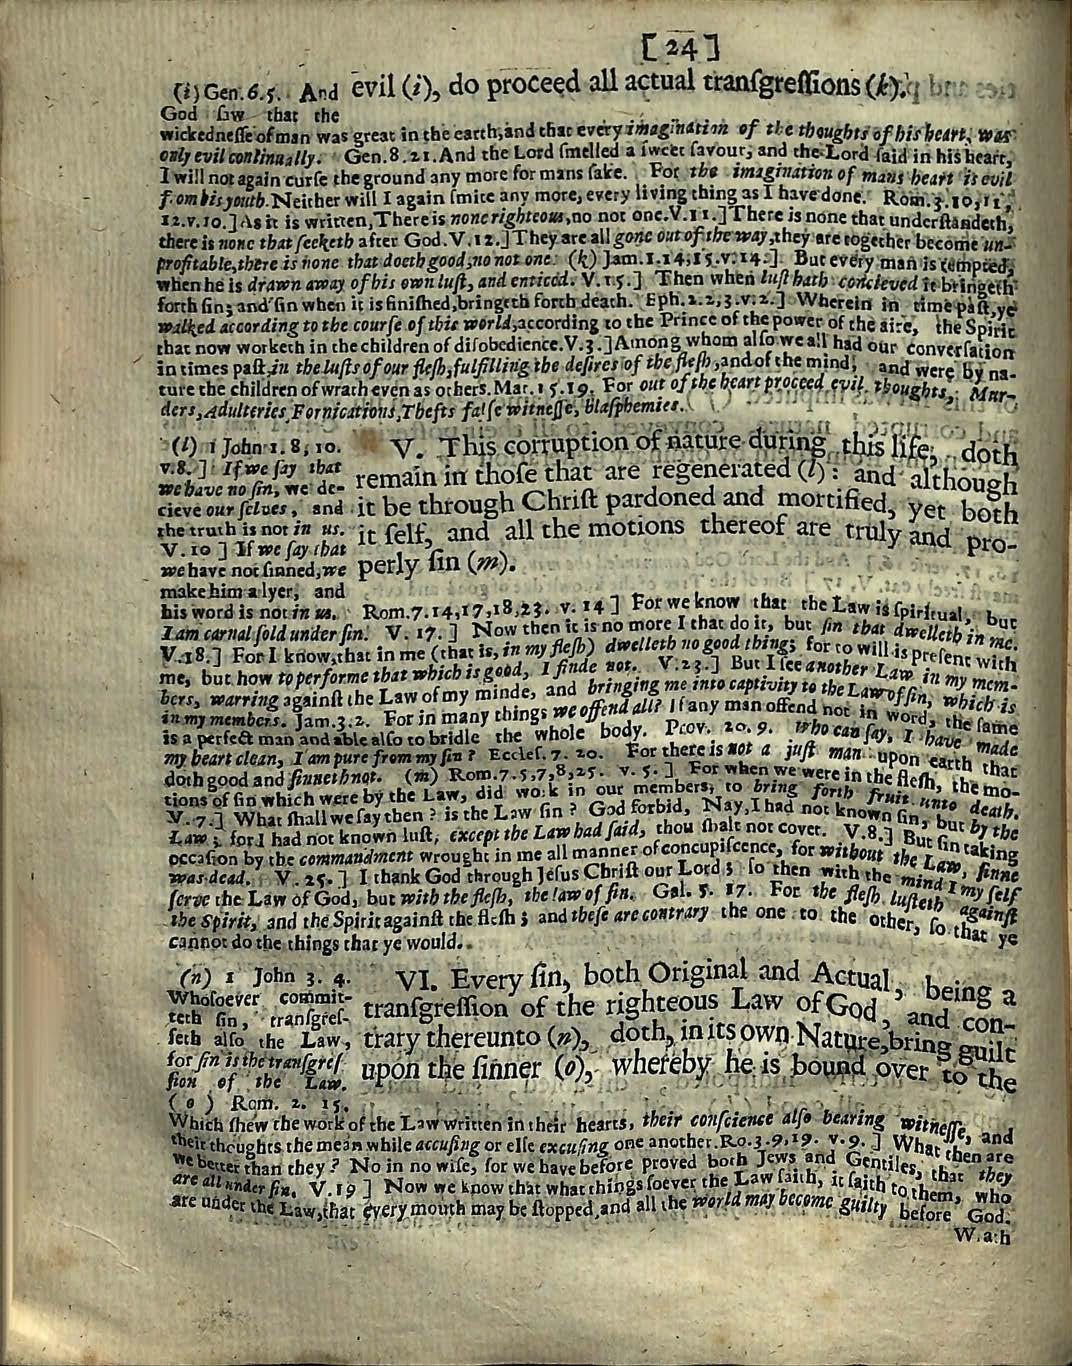 [24]
evil (i), do proceed all actual tranſgreſſions (k).
(i) Gen. 6. 5. And
God ſaw that the
wickedneſſe of man was great in the earth, and that every imagination of the thoughts of his heart, was
only evil continually. Gen. 8. 21. And the Lord ſmelled a ſweet ſavour, and the Lord ſaid in his heart,
I will not again curſe the ground any more for mans ſake. For the imagination of mans heart is evil
from his youth. Neither will I again ſmite any more, every living thing as I have done. Rom. 3. 10, 11,
12. v. 10.] As it is written, There is none righteous, no not one. V. 11.] There is none that underſtandeth,
there is none that ſeeketh after God. V. 12.] They are all gone out of the way, they are together become un-
profitable, there is none that doeth good, no not one. (k) Jam. 1. 14, 15. v. 14.] But every man is tempted,
when he is drawn away of his own luſt, and enticed. V. 15.] Then when luſt hath concieved it bringeth
forth ſin; and ſin when it is finiſhed, bringeth forth death. Eph. 2. 2, 3. v. 2.] Wherein in time paſt, ye
walked according to the courſe of this world, according to the Prince of the power of the aire, the Spirit
that now worketh in the children of diſobedience. V. 3.] Among whom alſo we all had our converſation
in times paſt, in the luſts of our fleſh, fulfilling the deſires of the fleſh, and of the mind, and were by na-
ture the children of wrath even as others. Mat. 15. 19. For out of the heart proceed evil thoughts, Mur-
ders, Adulteries, Fornications, Thefts falſe witneſſe, blaſphemies.
V. This corruption of nature during this life, doth
remain in thoſe that are regenerated (l): and although
it be through Chriſt pardoned and mortified, yet both
it ſelf, and all the motions thereof are truly and pro-
perly ſin (m).
(l) 1 John 1. 8, 10.
v. 8.] If we ſay that
we have no ſin, we de-
cieve our ſelves, and
the truth is not in us.
V. 10] If we ſay that
we have not ſinned, we
make him a lyer, and
his word is not in us. Rom. 7. 14, 17, 18, 23. v. 14] For we know that the Law is ſpiritual, but
I am carnal ſold under ſin. V. 17.] Now then it is no more I that do it, but ſin that dwelleth in me.
V. 18.] For I know, that in me (that is, in my fleſh) dwelleth no good thing; for to will is preſent with
me, but how to performe that which is good, I finde not. V. 23.] But I ſee another Law in my mem-
bers, warring againſt the Law of my minde, and bringing me into captivity to the Law of ſin, which is
in my members. Jam. 3. 2. For in many things we offend all? If any man offend not in word, the ſame
is a perfect man and able alſo to bridle the whole body. Prov. 20. 9. Who can ſay, I have made
my heart clean, I am pure from my ſin? Eccleſ. 7. 20. For there is not a juſt man upon earth that
doth good and ſinneth not. (m) Rom. 7. 5, 7, 8, 25. v. 5.] For when we were in the fleſh, the mo-
tions of ſin which were by the Law, did work in our members, to bring forth fruit unto death.
V. 7.] What ſhall we ſay then? is the Law ſin? God forbid, Nay, I had not known ſin, but by the
Law; for I had not known luſt, except the Law had ſaid, thou ſhalt not covet. V. 8.] But ſin taking
occaſion by the commandment wrought in me all manner of concupiſcence, for without the Law, ſinne
was dead. V. 25.] I thank God through Jeſus Chriſt our Lord; ſo then with the mind I my ſelf
ſerve the Law of God, but with the fleſh, the law of ſin. Gal. 5. 17. For the fleſh luſteth againſt
the Spirit, and the Spirit againſt the fleſh; and theſe are contrary the one to the other, ſo that ye
cannot do the things that ye would.
VI. Every ſin, both Original and Actual, being a
tranſgreſſion of the righteous Law of God, and con-
trary thereunto (n), doth, in its own Nature, bring guilt
upon the ſinner (o), whereby he is bound over to the
(n) 1 John 3. 4.
Whoſoever commit-
teth ſin, tranſgreſ-
ſeth alſo the Law,
for ſin is the tranſgreſ-
ſion of the Law.
(o) Rom. 2. 15.
Which ſhew the work of the Law written in their hearts, their conſcience alſo bearing witneſſe, and
their thoughts the mean while accuſing or elſe excuſing one another. Ro. 3. 9, 19. v. 9.] What then are
we better than they? No in no wiſe, for we have before proved both Jews and Gentiles, that they
are all under ſin. V. 19] Now we know that what things ſoever the Law ſaith, it ſaith to them, who
are under the Law, that every mouth may be ſtopped, and all the world may become guilty before God.
W.ath